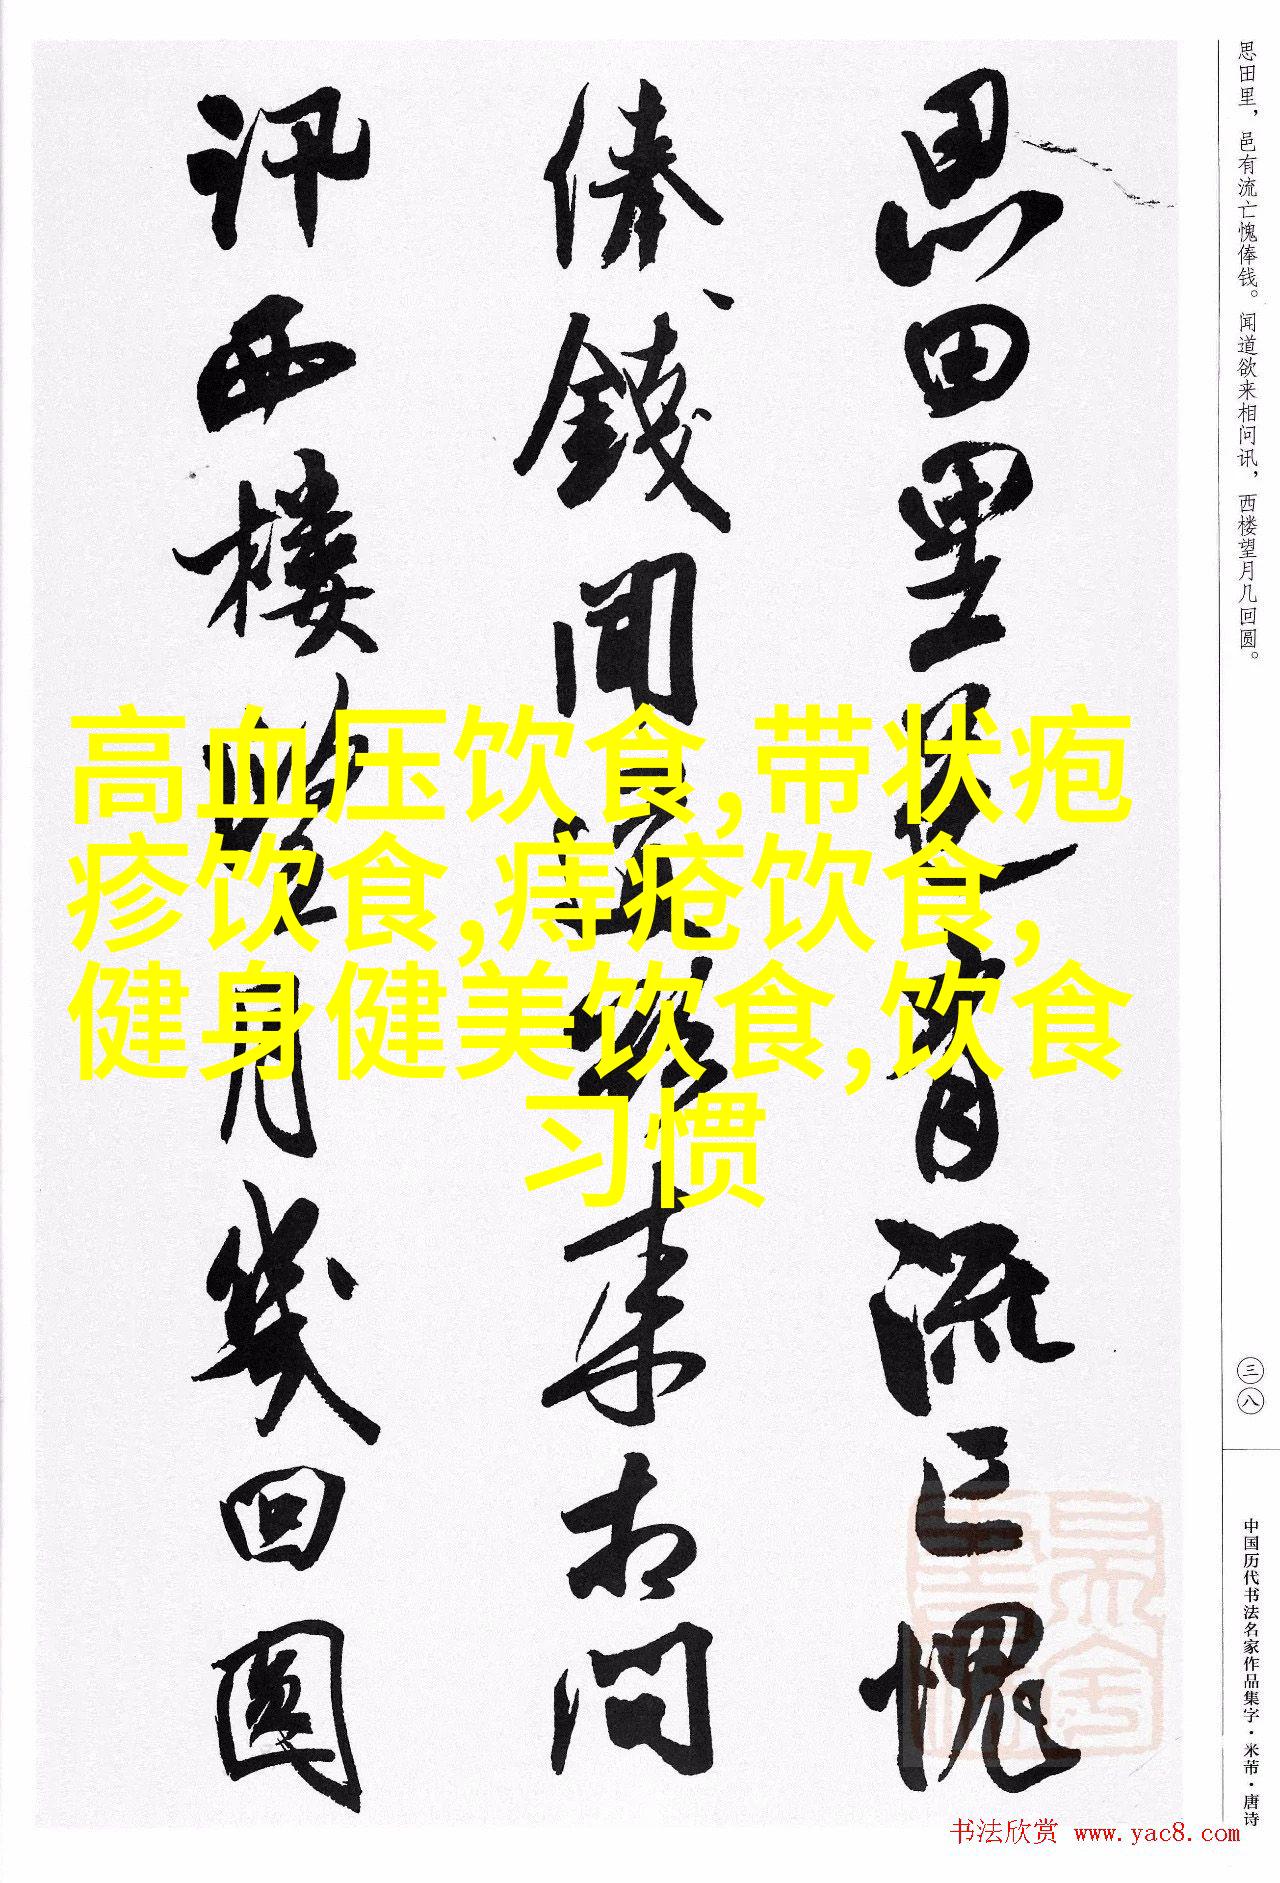 思田里邑有流亡愧
俸錢聞道欲来相問
訊西樓望月幾回圓
思田里，邑有流亡愧俸钱。闻道欲来相问讯，西楼望月几回圆。
三八
中国历代书法名家作品集字·米芾·唐诗
高血压饮食,带状疱
疹饮食,痔疮饮食,
健身健美饮食,饮食
习惯
书法欣赏 www.yac8.com